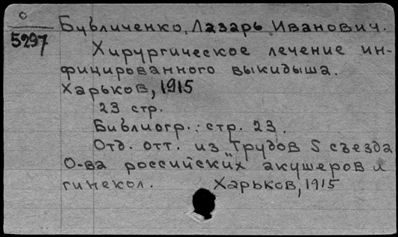 О
5297
Бубличенко, Лазарь Иванович.
Хирургическое лечение ин-
фицированного выкидыша.
Харьков, 1915
23 стр.
Библиогр.: стр. 23.
Отд. отт. из Трудов 5 съезда
О-ва российских акушеров и
гинекол. Харьков, 1915